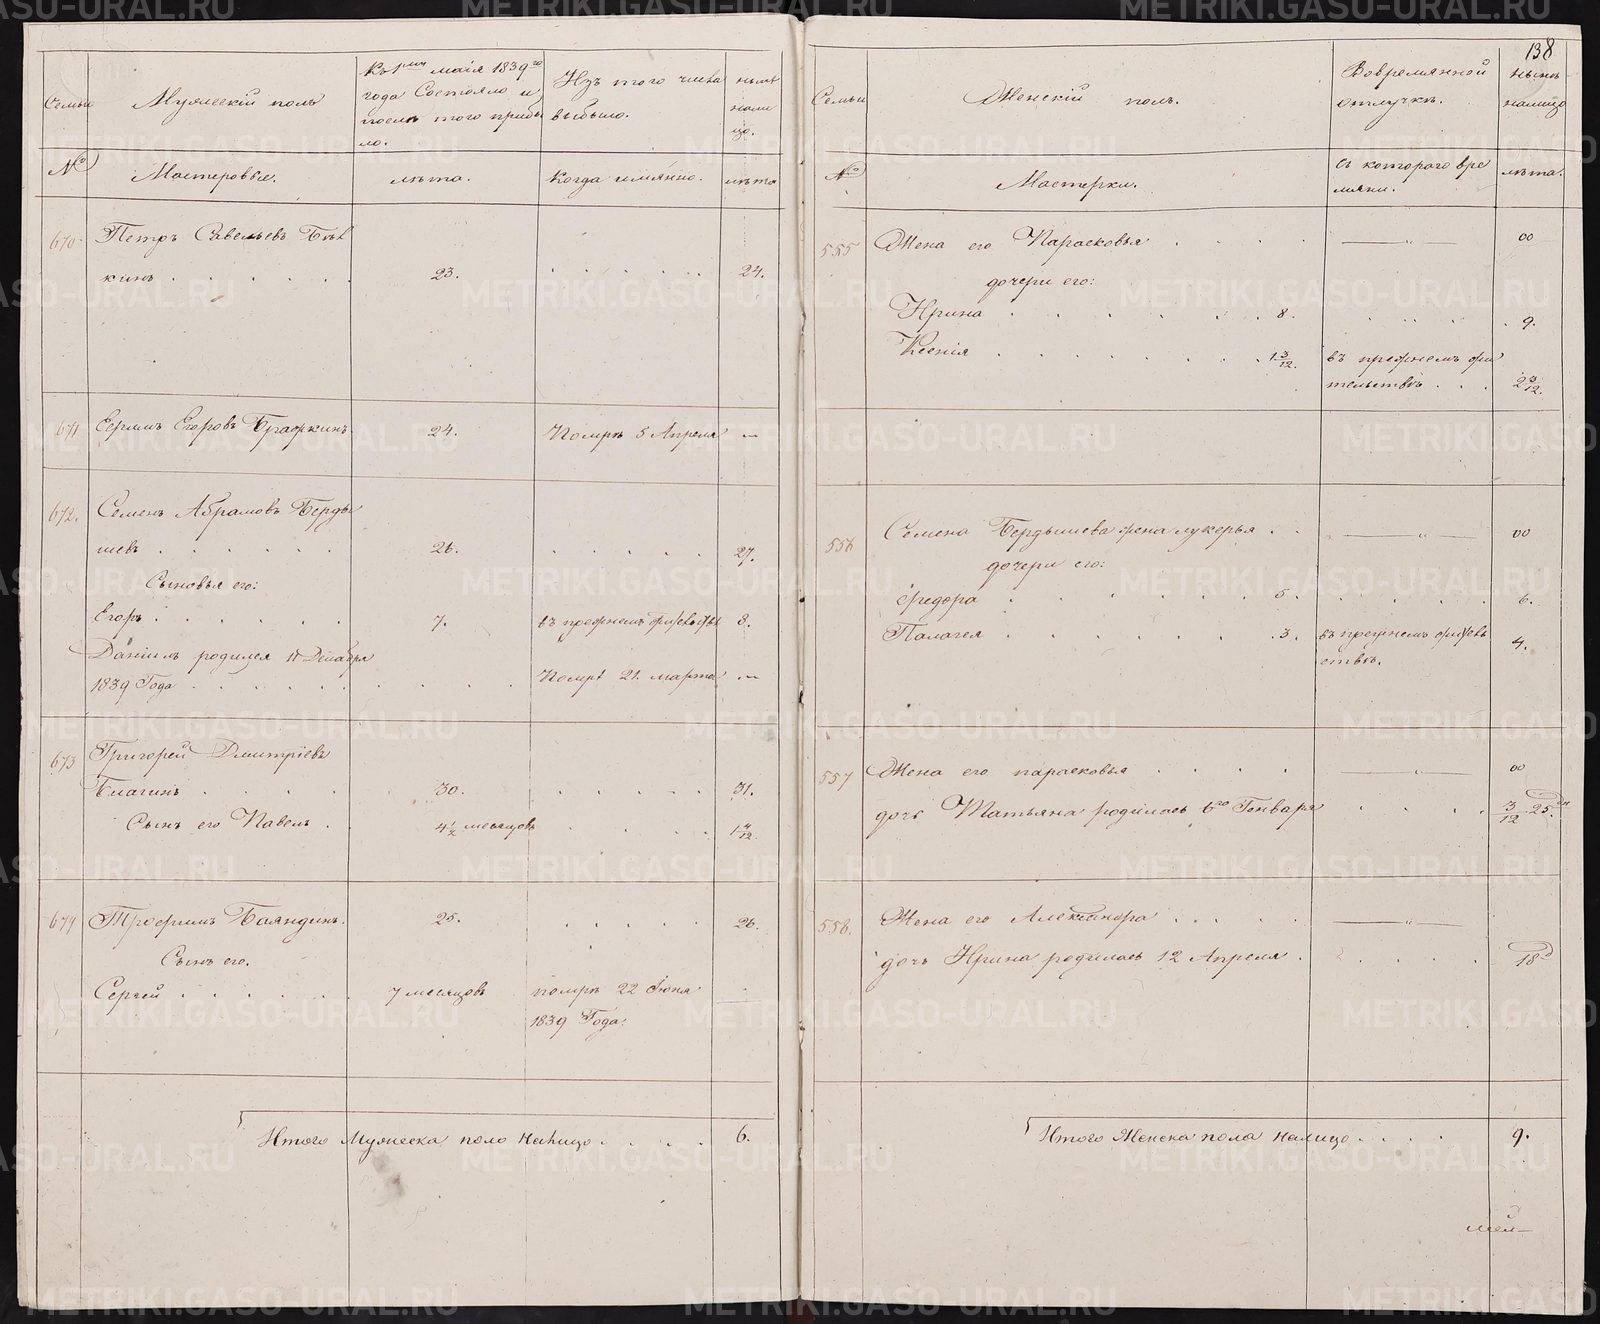 138
Семьи
Мужескій полъ
Къ 1му маія 1839го
года Состояло и
после того прибы
ло.
Изъ того числа
выбыло.
ныне
нали
цо.
№
Мастеровые.
лѣта.
Когда имянно.
лѣта
670
Петръ Савельевъ Бѣл
кинъ
23.
24.
671
Ефимъ Егоровъ Бражкинъ
24.
Помре 5 Апреля
672.
Семенъ Абрамовъ Берды
шевъ
26.
27.
Сыновья его:
Егоръ
7.
въ прежнемъ
8.
Даніилъ родился 11 Декабря
1839 Года
Помре 21. марта
673
Григорей Дмитріевъ
Благинъ
30.
31.
Сынъ его Павелъ
4 1/2 месяцовъ
1 4/12
674
Трофимъ Баяндинъ.
25.
26.
Сынъ его.
Сергей
7 месяцовъ
помре 22 Июня
1839 Года.
Итого Мужеска поло налицо
6.
Семьи
Женскій полъ.
Вовремянной
отлучке.
ныне
налицо
№
Мастерки.
съ котораго вре
мяни.
лѣта.
555
Жена его Парасковья
00
дочери его:
Ирина
8.
9.
Ксенія
1 3/12.
въ прежнемъ жи
тельстве
2 3/12.
556
Семена Бердышева жена лукерья
00
дочери его:
Федора
5.
6.
Палагея
3.
въ прежнемъ
4.
557
Жена его парасковья
00
дочь Татьяна родилась 6го Генваря
3/12 25.
558.
Жена его Александра
дочь Ирина родилась 12 Апреля
18
Итого Женска пола налицо
9.
METRIKI.GASO-URAL.RU